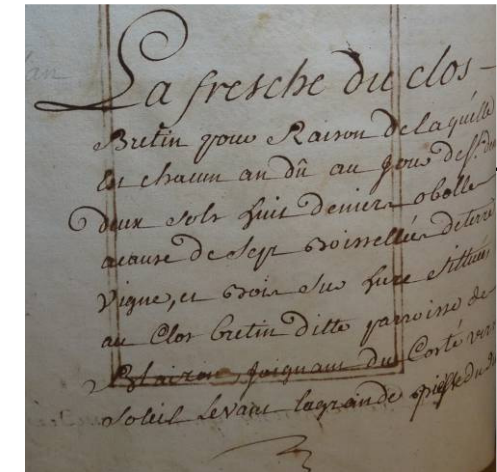 La fresche du clos -
Bretin pour Raison de laquelle
En chacun an dû au jour de St.
deux sols huit deniers obolle
acause de Sept Boissellées de terre
Vigne, et Bois Sittuée
au Clos bretin ditte parroisse de
joignant du Costé vers
Soleil Levant la grande piesse du